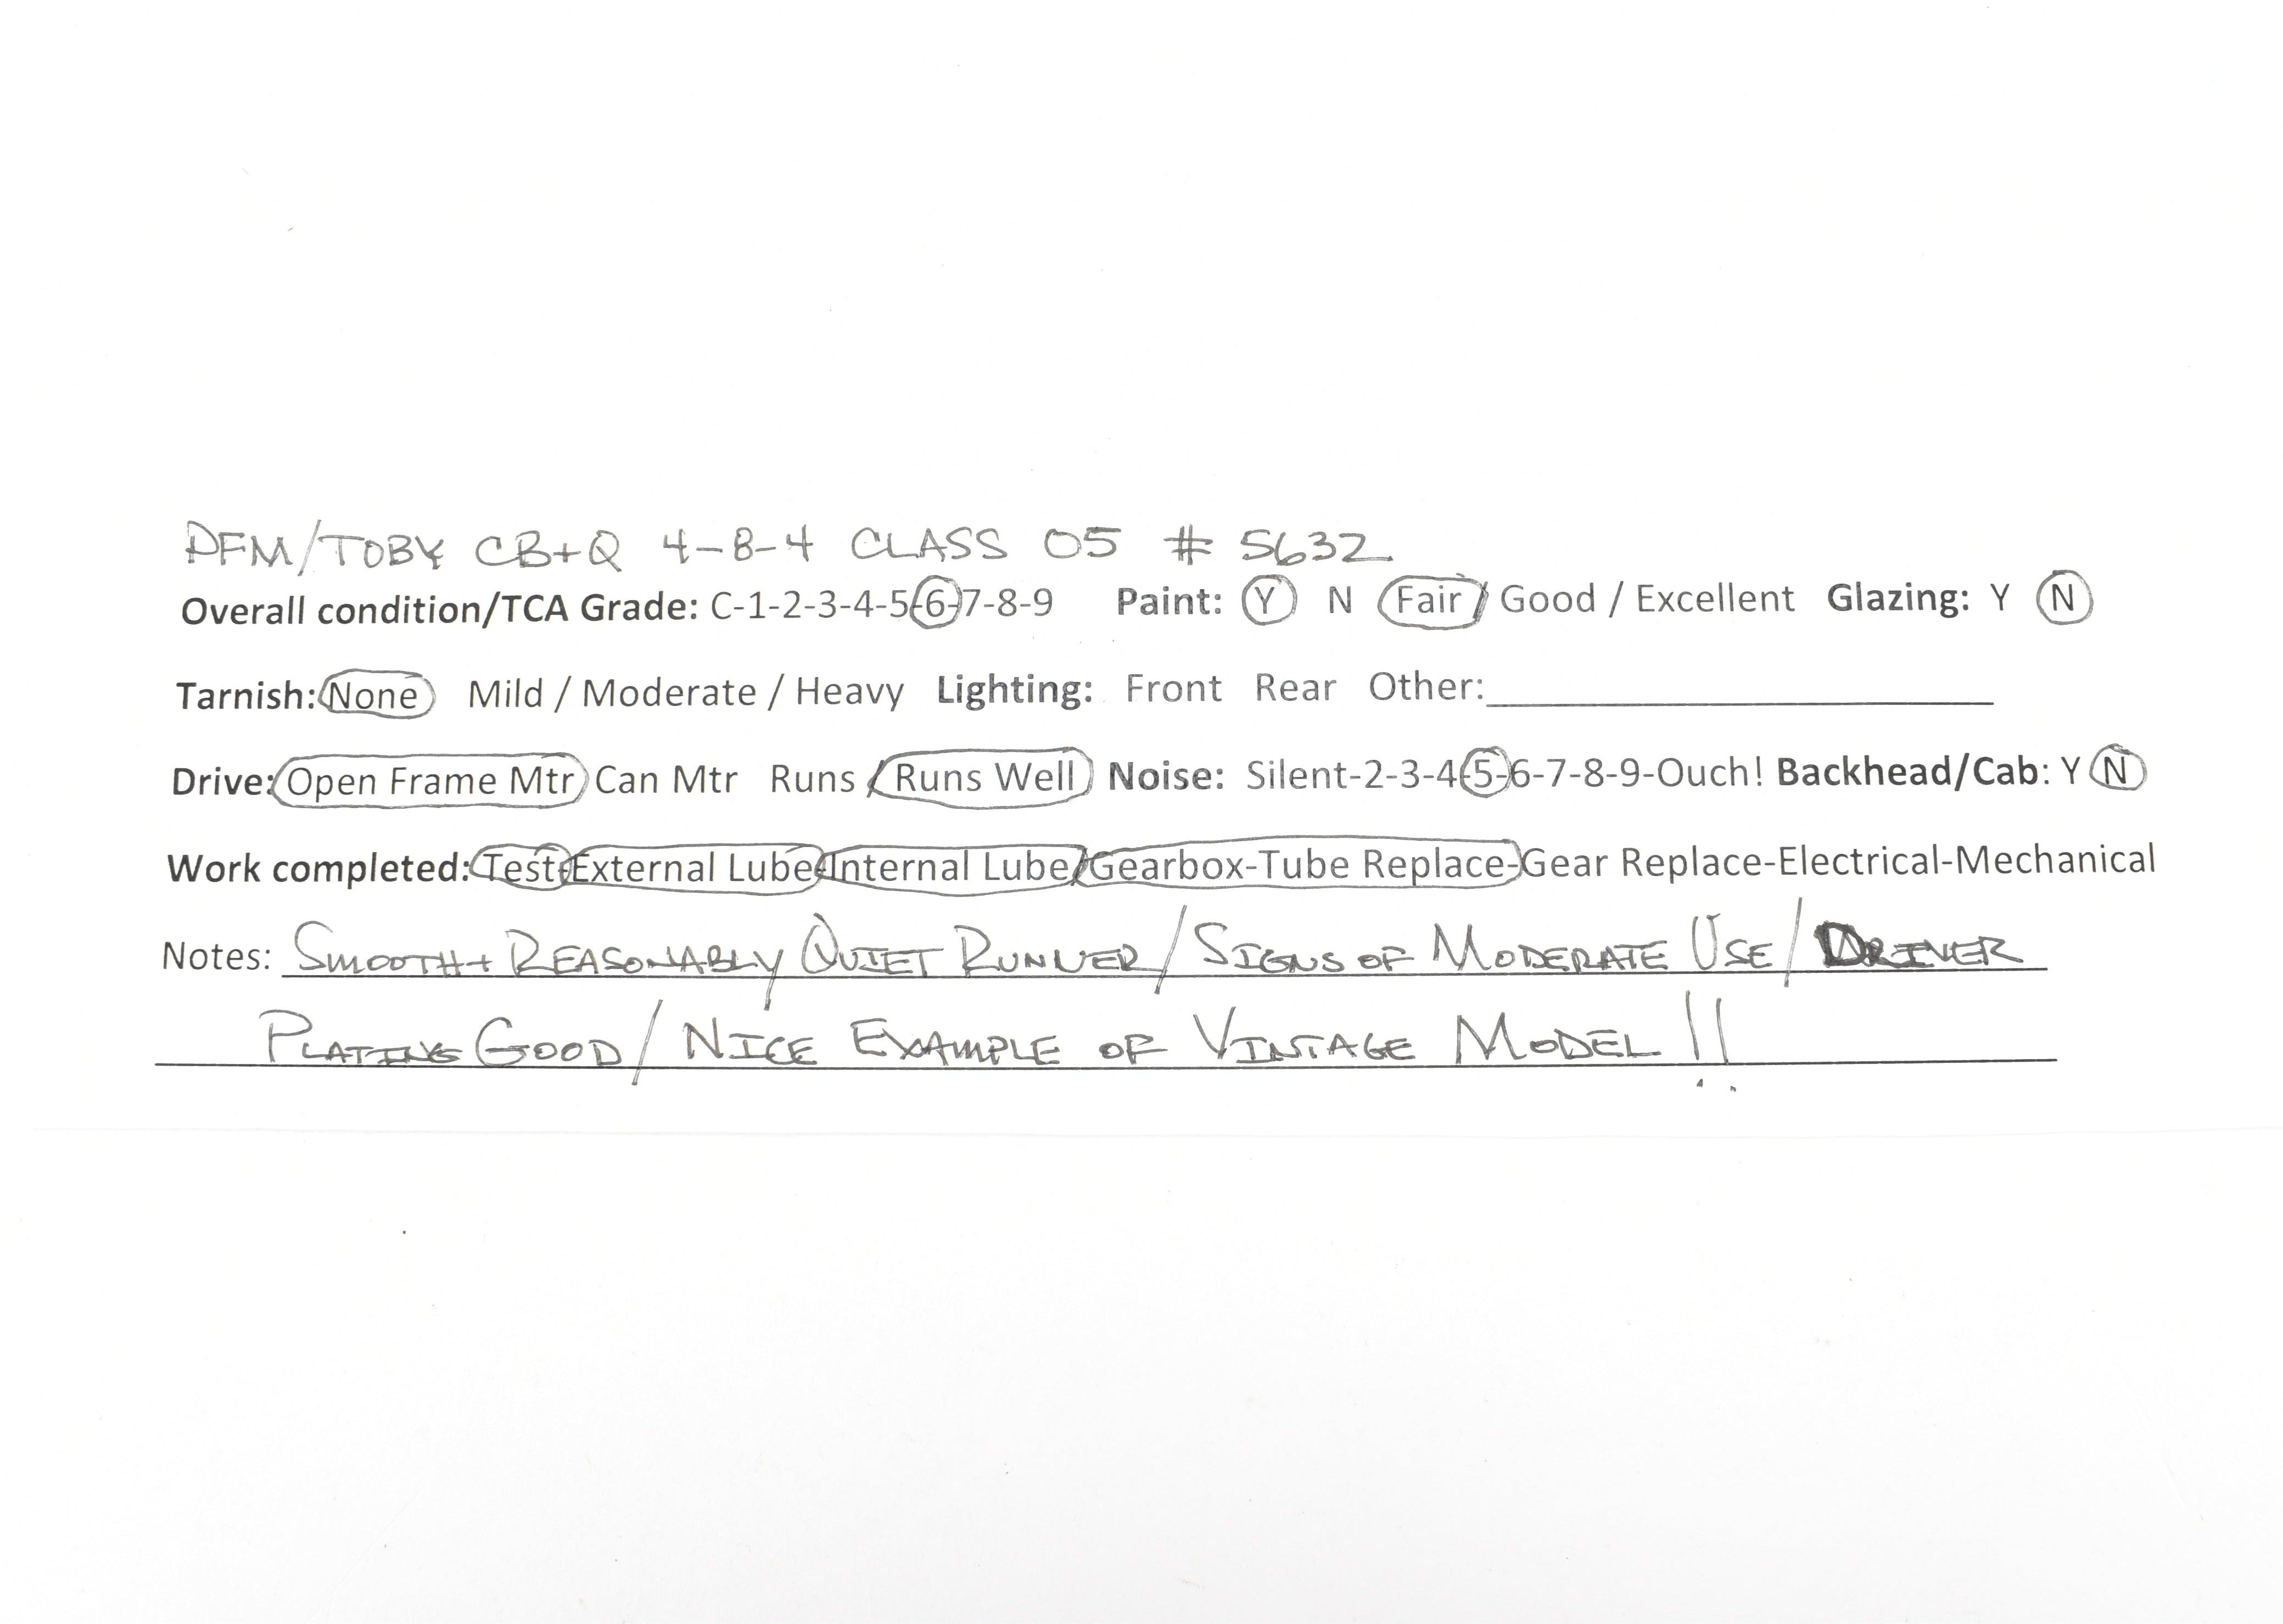 PFM/TOBY CB+Q 4-8-4 CLASS O5 # 5632
Overall condition/TCA Grade: C-1-2-3-4-5-6-7-8-9 Paint: Y N Fair / Good / Excellent Glazing: Y N
Tarnish: None Mild / Moderate / Heavy Lighting: Front Rear Other:
Drive: Open Frame Mtr Can Mtr Runs / Runs Well Noise: Silent-2-3-4-5-6-7-8-9-Ouch! Backhead/Cab: Y N
Work completed: Test-External Lube-Internal Lube/Gearbox-Tube Replace-Gear Replace-Electrical-Mechanical
Notes: SMOOTH + REASONABLY QUIET RUNNER / SIGNS OF MODERATE USE / DRIVER
PLATING GOOD / NICE EXAMPLE OF VINTAGE MODEL !!